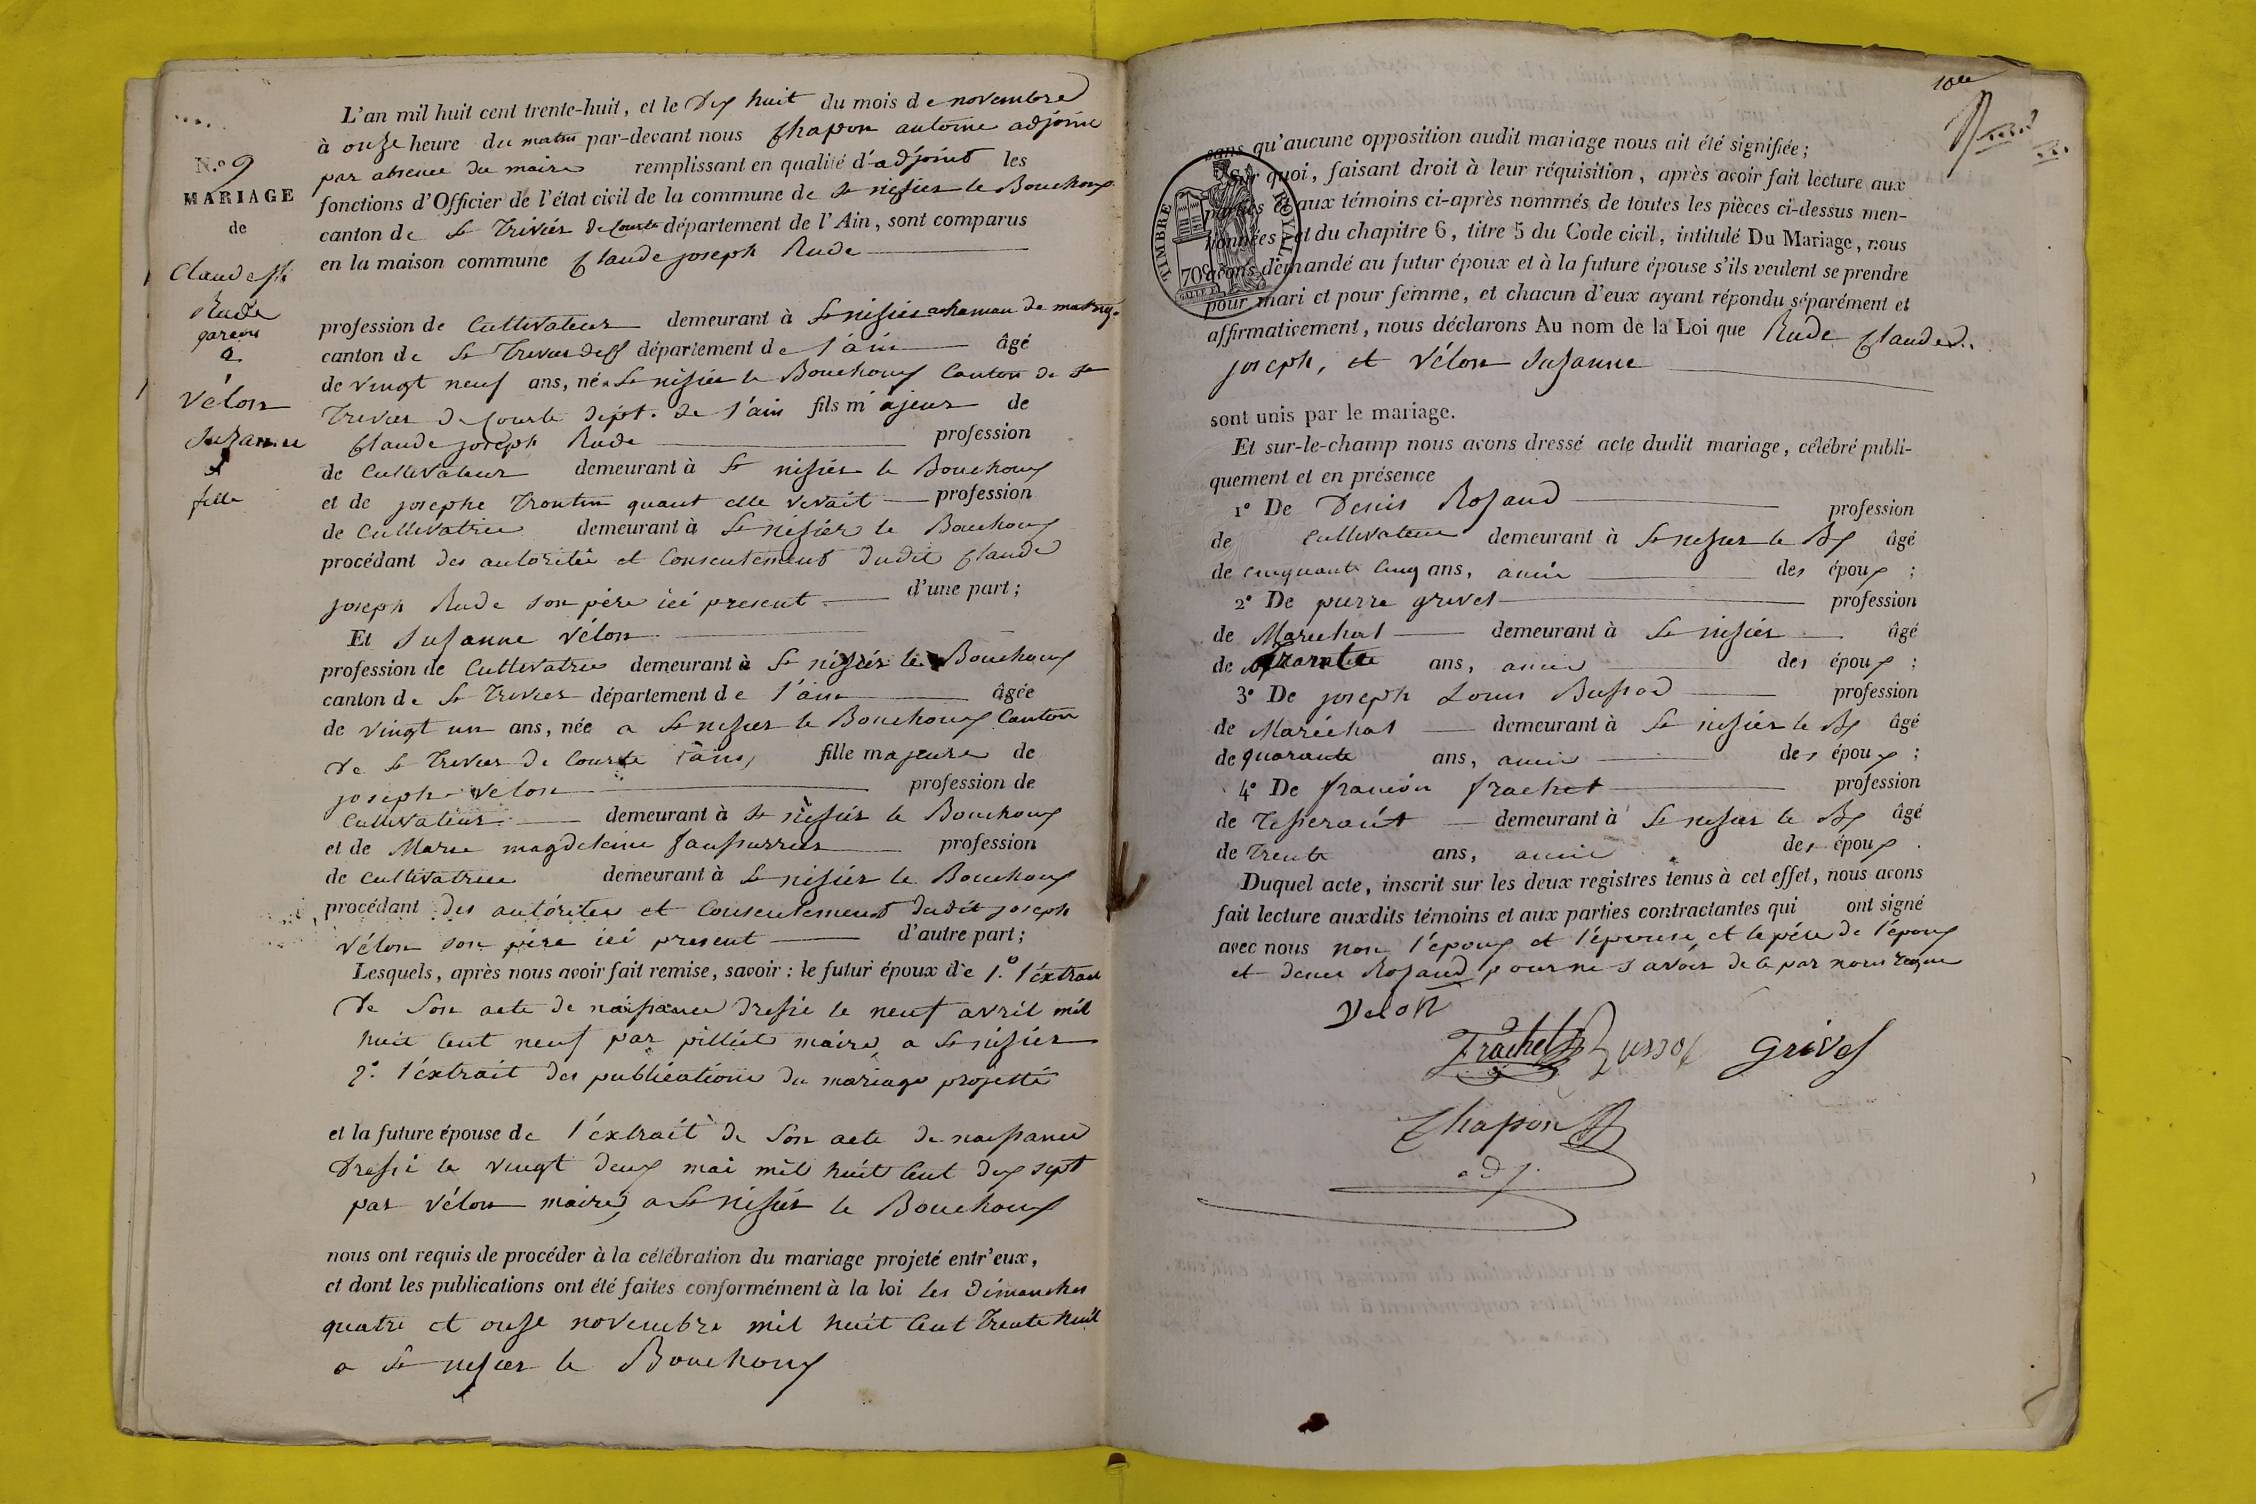 L'an mil huit cent trente-huit, et le Dix huit du mois de novembre
à onze heure du matin par-devant nous Chapon antoine adjoint
par absence du maire remplissant en qualité d'adjoint les
fonctions d'Officier de l'état civil de la commune de St nisier le Bouchoux
canton de St Trivier de Courte département de l'Ain, sont comparus
en la maison commune Claude joseph Rude
N.º 9
MARIAGE
de
Claude Jh
Rude
garçon
&
Vélon
Suzanne
fille
profession de Cultivateur demeurant à St nisier hamau de
canton de St Trivier département de l'ain âgé
de vingt neuf ans, né a St nisier le Bouchoux Canton de St
Trivier de Courte dépt. de l'ain fils majeur de
Claude joseph Rude profession
de Cultivateur demeurant à St nisier le Bouchoux
et de josephe Trontin quant elle vivait profession
de Cultivatrice demeurant à St nisier le Bouchoux
procédant des autorités et Consentement dudit Claude
joseph Rude son père ici present d'une part;
Et Suzanne Vélon
profession de Cultivatrice demeurant à St nisier le Bouchoux
canton de St Trivier département de l'ain âgée
de vingt un ans, née a St nisier le Bouchoux Canton
de St Trivier de Courte l'ain, fille majeure de
joseph Velon profession de
Cultivateur demeurant à St nisier le Bouchoux
et de Marie magdeleine profession
de Cultivatrice demeurant à St nisier le Bouchoux
procédant des autorites et Consentement dudit joseph
Vélon son père ici present d'autre part;
Lesquels, après nous avoir fait remise, savoir : le futur époux de 1.º l'extrait
de Son acte de naissance dressé le neuf avril mil
huit Cent neuf par pillict maire, a St nisier
2.º l'éxtrait des publications du mariage projetté
et la future épouse de l'éxtrait de Son acte de naissance
dressé le vingt deux mai mil huit Cent dix sept
par Vélon maire, a St nisier le Bouchoux
nous ont requis de procéder à la célébration du mariage projeté entr'eux,
et dont les publications ont été faites conformément à la loi les dimanches
quatre et onze novembre mil huit Cent Trente huit
a St nisier le Bouchoux
10e
sans qu'aucune opposition audit mariage nous ait été signifiée;
Sur quoi, faisant droit à leur réquisition, après avoir fait lecture aux
parties et aux témoins ci-après nommés de toutes les pièces ci-dessus men-
tionnées et du chapitre 6, titre 5 du Code civil, intitulé Du Mariage, nous
avons demandé au futur époux et à la future épouse s'ils veulent se prendre
pour mari et pour femme, et chacun d'eux ayant répondu séparément et
affirmativement, nous déclarons Au nom de la Loi que Rude Claude
joseph, et Vélon Suzanne
TIMBRE ROYAL
70c
sont unis par le mariage.
Et sur-le-champ nous avons dressé acte dudit mariage, célébré publi-
quement et en présence
1º De Denis Rozand profession
de Cultivateur demeurant à St nisier le Bx âgé
de cinquante Cinq ans, amis des époux ;
2º De pierre grivet profession
de Maréchal demeurant à St nisier âgé
de ans, amis des époux ;
3º De joseph Louis Bussod profession
de Maréchal demeurant à St nisier le Bx âgé
de quarante ans, amis des époux ;
4º De françois frachet profession
de Tisserant demeurant à St nisier le Bx âgé
de Trente ans, amis des époux .
Duquel acte, inscrit sur les deux registres tenus à cet effet, nous avons
fait lecture auxdits témoins et aux parties contractantes qui ont signé
avec nous non l'époux et l'épouse et le père de l'époux
et denis Rozand pour ne savoir de ce par nous requis
Velon
Frachet Bussod Grivet
Chapon
adj.